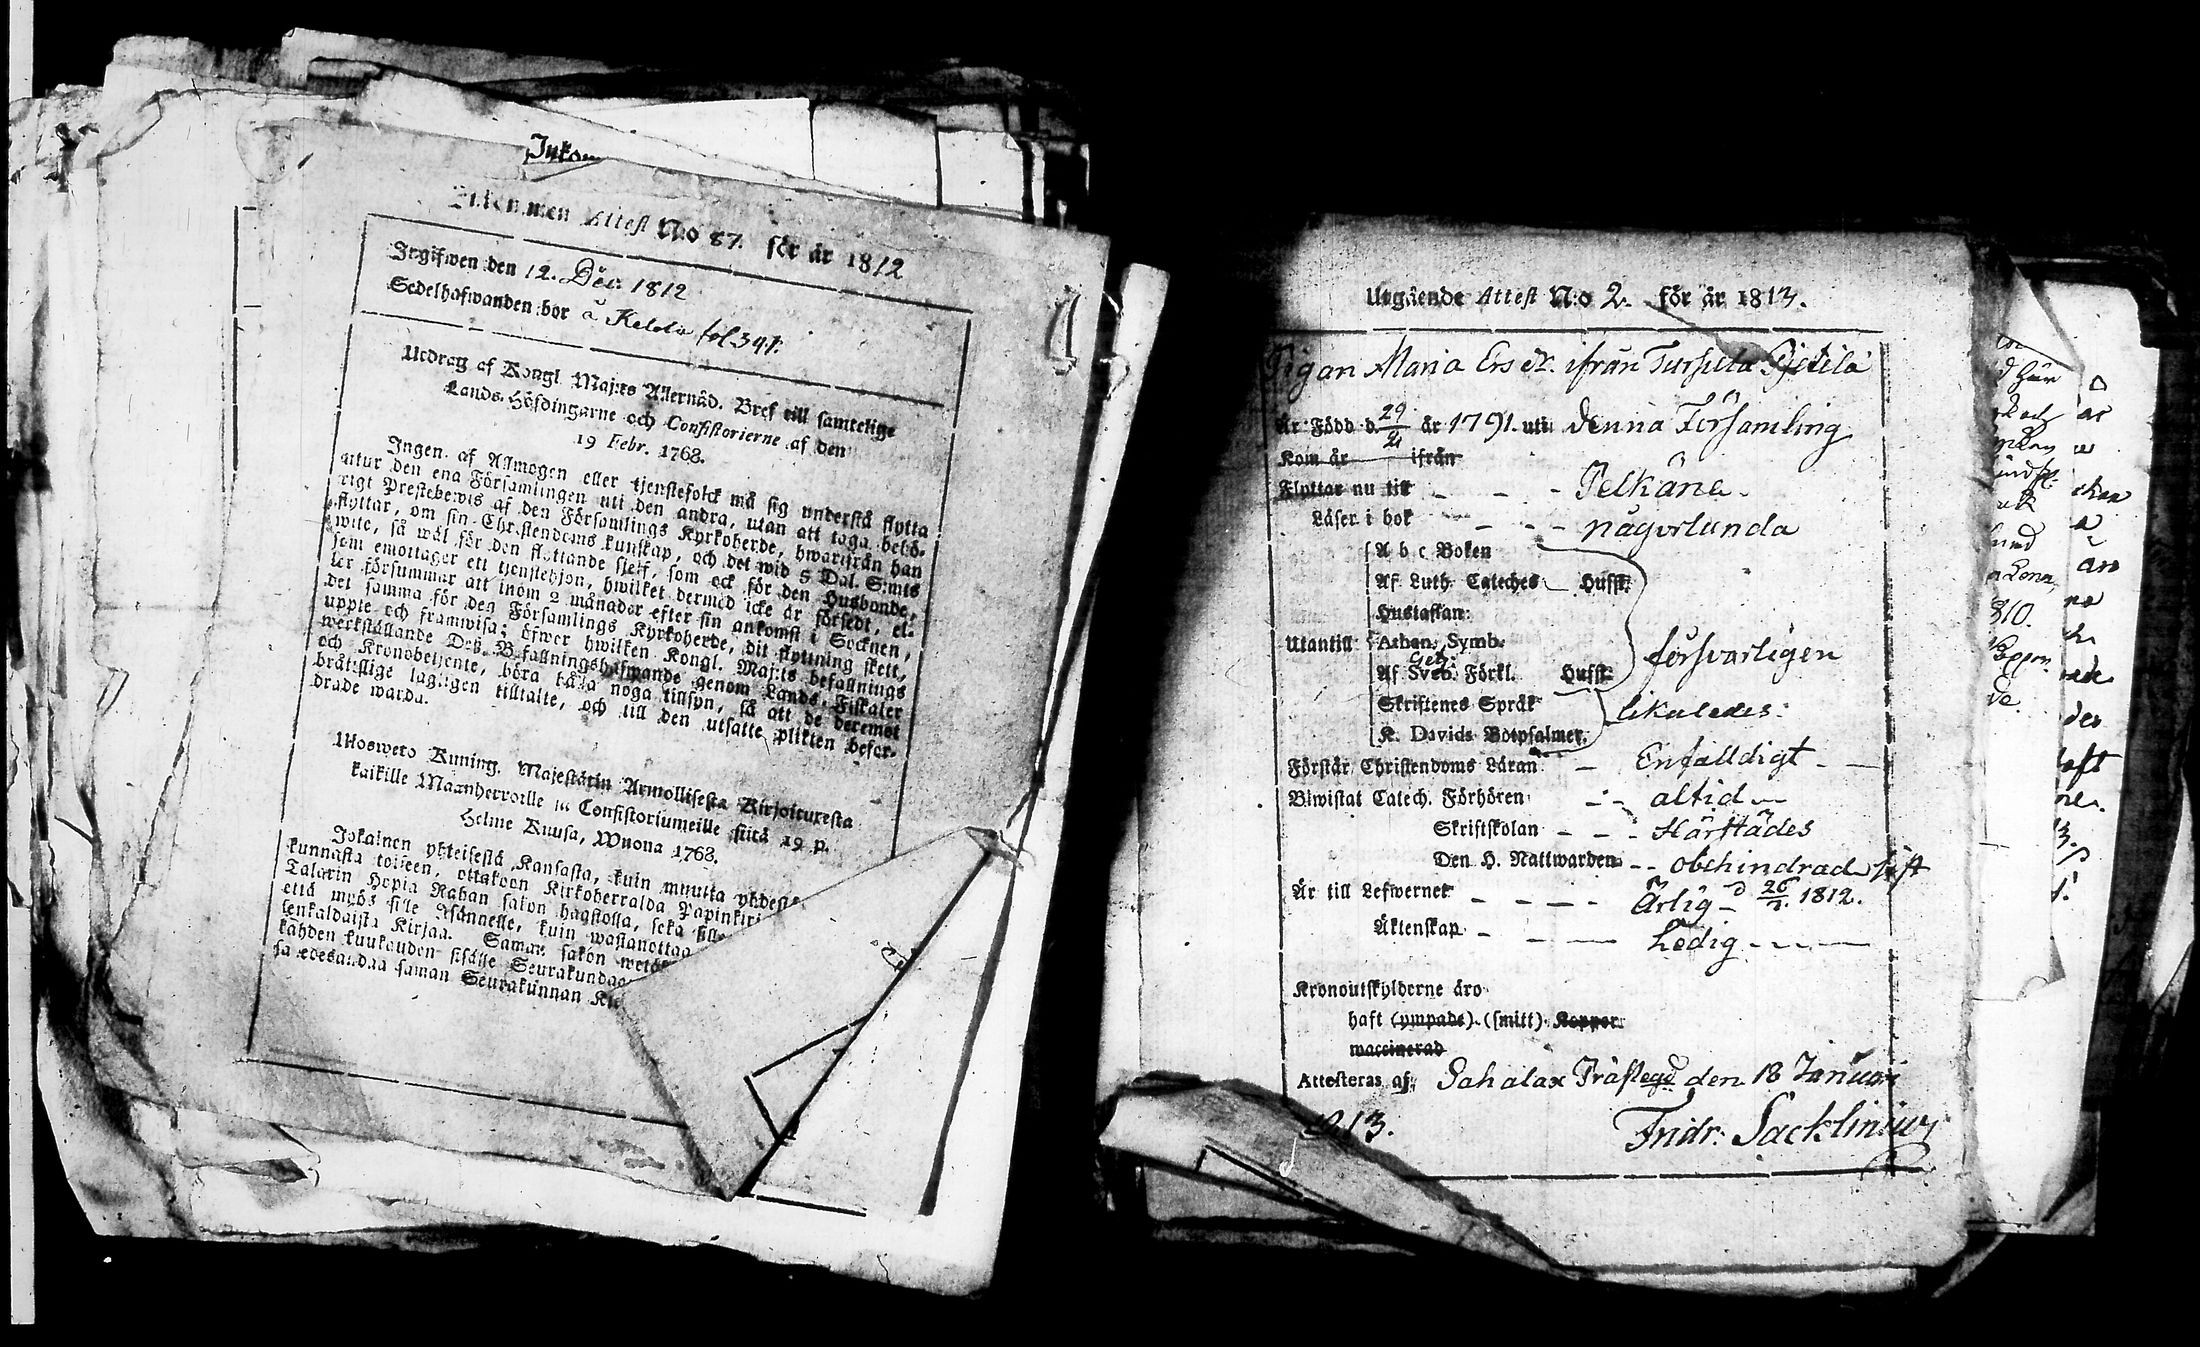 Inkom
Inkommen Attest N:o 87. för år 1812
Ingifwen den 12. Dec: 1812
Sedelhafwanden bor å Kelola fol. 341.
Utdrag af Kongl. Maj:ts Allernåd. Bref till samtelige
Lands-Höfdingarne och Consistorierne af den
19 Febr. 1768.
Ingen af Allmogen eller tjenstefolck må sig understå flytta
utur den ena Församlingen uti den andra, utan att taga behö-
rigt Prestebewis af den Församlings Kyrkoherde, hwarifrån han
flyttar, om sin Christendoms kunskap, och det wid 5 Dal. S:mts
wite, så wäl för den flyttande sjelf, som ock för den Husbonde,
som emottager ett tjenstehjon, hwilket dermed icke är försedt, el-
ler försummar att inom 2 månader efter sin ankomst i Socknen,
det samma för den Församlings Kyrkoherde, dit flyttning skett,
uppte och framwisa; öfwer hwilken Kongl. Maj:ts befallnings
werkställande Deß Befallningshafwande genom Lands-Fiskaler
och Kronobetjente, böra hålla noga tillsyn, så att de deremot
brottslige lagligen tilltalte, och till den utsatte plikten befor-
drade warda.
Ulosweto Kuning. Majestätin Armollisesta Kirjoituxesta
kaikille Maanherroille ja Consistoriumeille siitä 19 p.
Helme Kuusa, Wuona 1768.
Jokainen yhteisestä Kansasta, kuin muutta yhdestä
kunnasta toiseen, ottakoon Kirkoherralda Papinkirj
Talarin Hopia Rahan sakon haastolla, sekä sille
että myös sille Isännelle, kuin wastanottaa
tenkaldaista Kirjaa. Saman sakon wetä
kahden kuukauden sisälle Seurakundaan
ja edesandaa saman Seurakunnan Ki
Utgående Attest N:o 2. för år 1813.
Pigan Maria Ers dr. ifrån Tursula Pjetilä
Är Född d. 29/2 år 1791. uti denna Församling
Kom år ifrån
Flyttar nu till - - - Pelkäne.
Läser i bok - - - någorlunda
A b c Boken
Af Luth. Cateches Hufst.
Hustaflan:
Utantill: Athan. Symb.
Af Sveb. Förkl. Hufst.
försvarligen
Skriftenes Språk
likaledes.
K. Davids Botpsalmer.
Förstår Christendoms Läran - Enfaldigt - -
Biwistat Catech. Förhören - - altid
Skriftskolan - - - Härstädes
Den H. Nattwarden - - obehindrad sist
Är till Lefwernet - - - - Ärlig d 26/7. 1812.
Äktenskap - - - Ledig - - -
Kronoutskylderne äro
haft (ympade) (smitt) Koppor
waccinerad
Attesteras af: Sahalax Prästegd den 18 Januari
1813.
Fridr. Sacklinius
310.